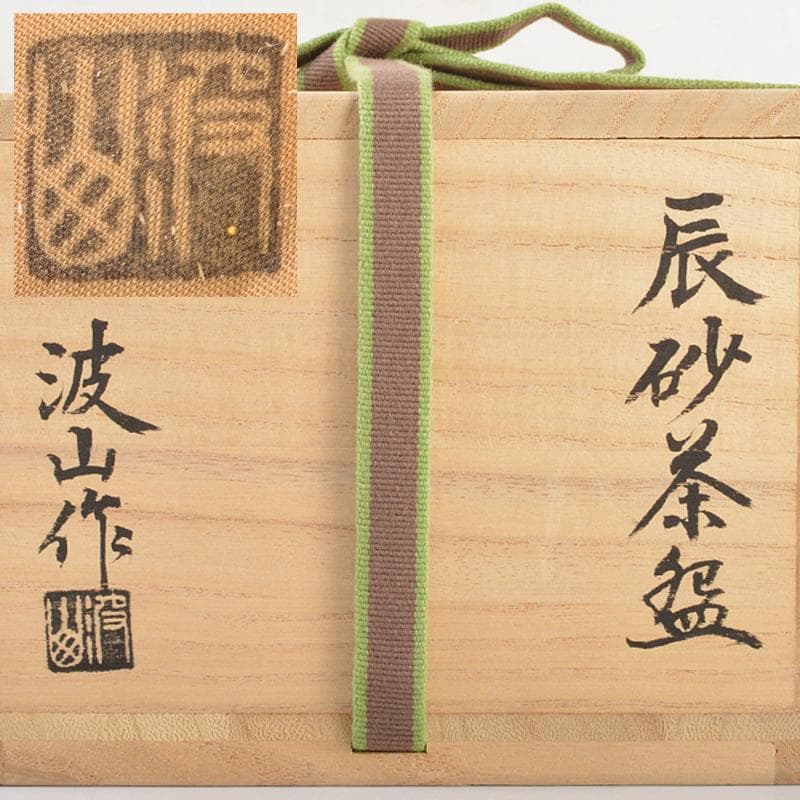 辰砂茶盌
波山作
波山
波山